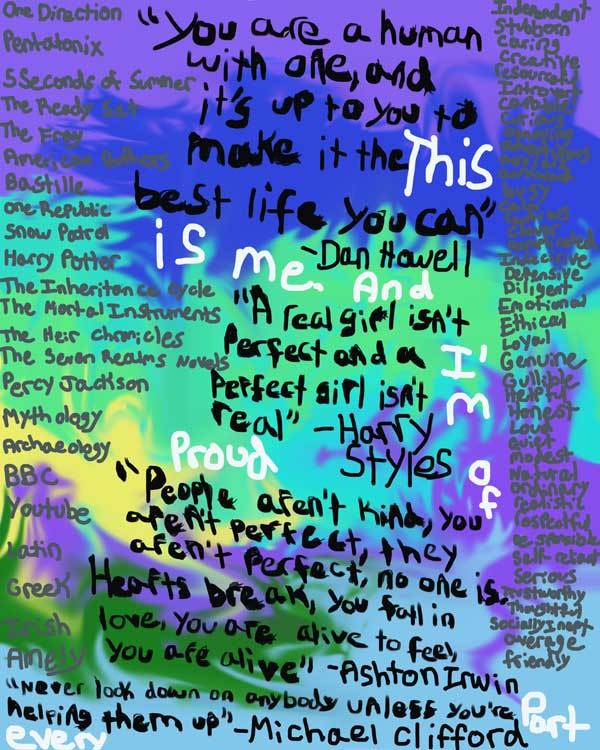 One Direction
Pentatonix
5 Seconds of Summer
The Ready Set
The Fray
American Authors
Bastille
One Republic
Snow Patrol
Harry Potter
The Inheritance cycle
The Mortal Instruments
The Heir Chronicles
The Seven Realms Novels
Percy Jackson
Mythology
Archaeology
BBC
Youtube
Latin
Greek
Irish
"You are a human
with one, and
it's up to you to
make it the
best life you can"
-Dan Howell
"A real girl isn't
perfect and a
perfect girl isn't
real" -Harry
Styles
"People aren't kind, you
aren't perfect, they
aren't perfect, no one is.
Hearts break, you fall in
love, you are alive to feel,
you are alive" -Ashton Irwin
"Never look down on anybody unless you're
helping them up" -Michael Clifford
This
is me. And
I'm
Proud
of
every
Part
Independent
Stubborn
Caring
Creative
Introvert
Capable
Curious
Annoying
Busy
Clever
Complicated
Indecisive
Defensive
Diligent
Emotional
Ethical
Loyal
Genuine
Gullible
Helpful
Honest
Loud
Quiet
Modest
Natural
Ordinary
realistic
respectful
responsible
Serious
trustworthy
thoughtful
Socially inept
average
friendly